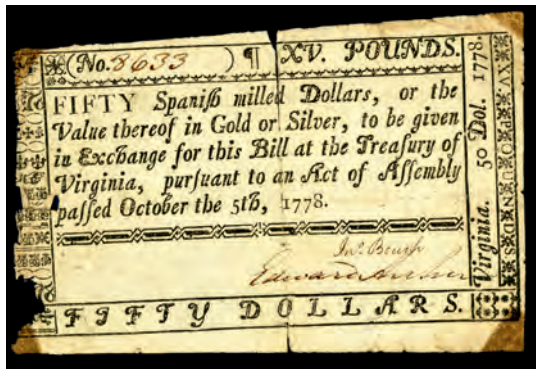 (No. 8633 ) ¶ XV. POUNDS.
FIFTY Spaniſh milled Dollars, or the
Value thereof in Gold or Silver, to be given
in Exchange for this Bill at the Treaſury of
Virginia, purſuant to an Act of Aſſembly
paſſed October the 5th, 1778.
Jnº. Brush
Edward Archer
FIFTY DOLLARS.
Virginia. 50 Dol. 1778.
XV POUNDS